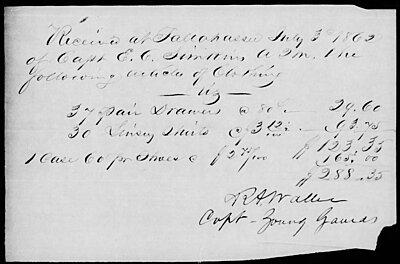 Received at Tallahassee July 3d 1862
of Capt E. C. Simkins A.Q.M. the
following articles of Clothing
viz
37 pair Drawers @ 80c 29.60
30 Linsey Shirts @ $3 12½ 93.75
$123.35
1 Case 60 pr Shoes @ $2 75/100 165.00
$288.35
R A Waller
Capt - Young Gaurds